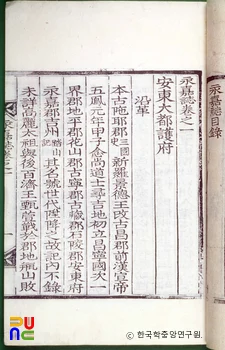 永嘉誌目錄
永嘉誌卷之一
安東大都護府
沿革
本古陁耶郡史三國新羅景德王改古昌郡前漢皇帝
五鳳元年甲子俞尚道士尋吉地初立昌寧國次一
界郡地平郡花山郡古寧郡古幟郡石陵郡安東府
永嘉郡吉州諸山記其名號世代陞降之故記內不錄
未詳高麗太祖與後百濟王甄萱戰於郡地甁山敗
永嘉誌卷之一
PUNC
© 한국학중앙연구원